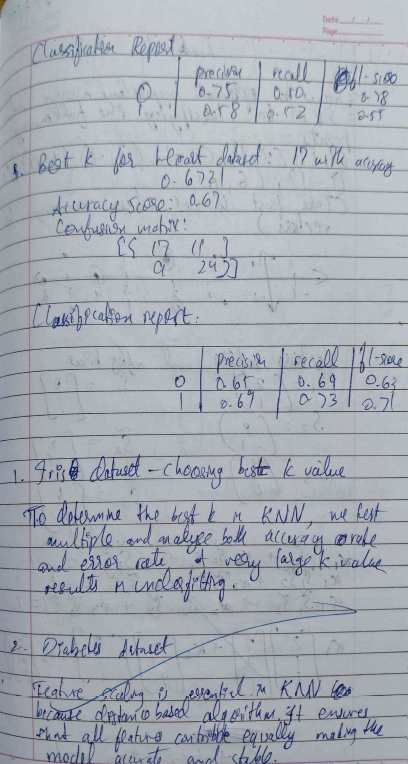 Date
Page
Classification Report:
precision recall f1-score
0 0.75 0.80 0.78
1 0.58 0.52 0.55
Best k for Heart dataset: 17 with accuracy
0.6721
Accuracy Score: 0.67
Confusion matrix:
[[ 17 11 ]
9 24]]
Classification report:
precision recall f1-score
0 0.65 0.69 0.63
1 0.69 0.73 0.71
1. Iris dataset - choosing best k value
To determine the best k in KNN, we test
multiple and analyze both accuracy rate
and error rate of very large k value
results in underfitting.
2. Diabetes dataset
Feature scaling is essential in KNN
because distance based algorithm, it ensures
that all feature contribute equally making the
model accurate and stable.